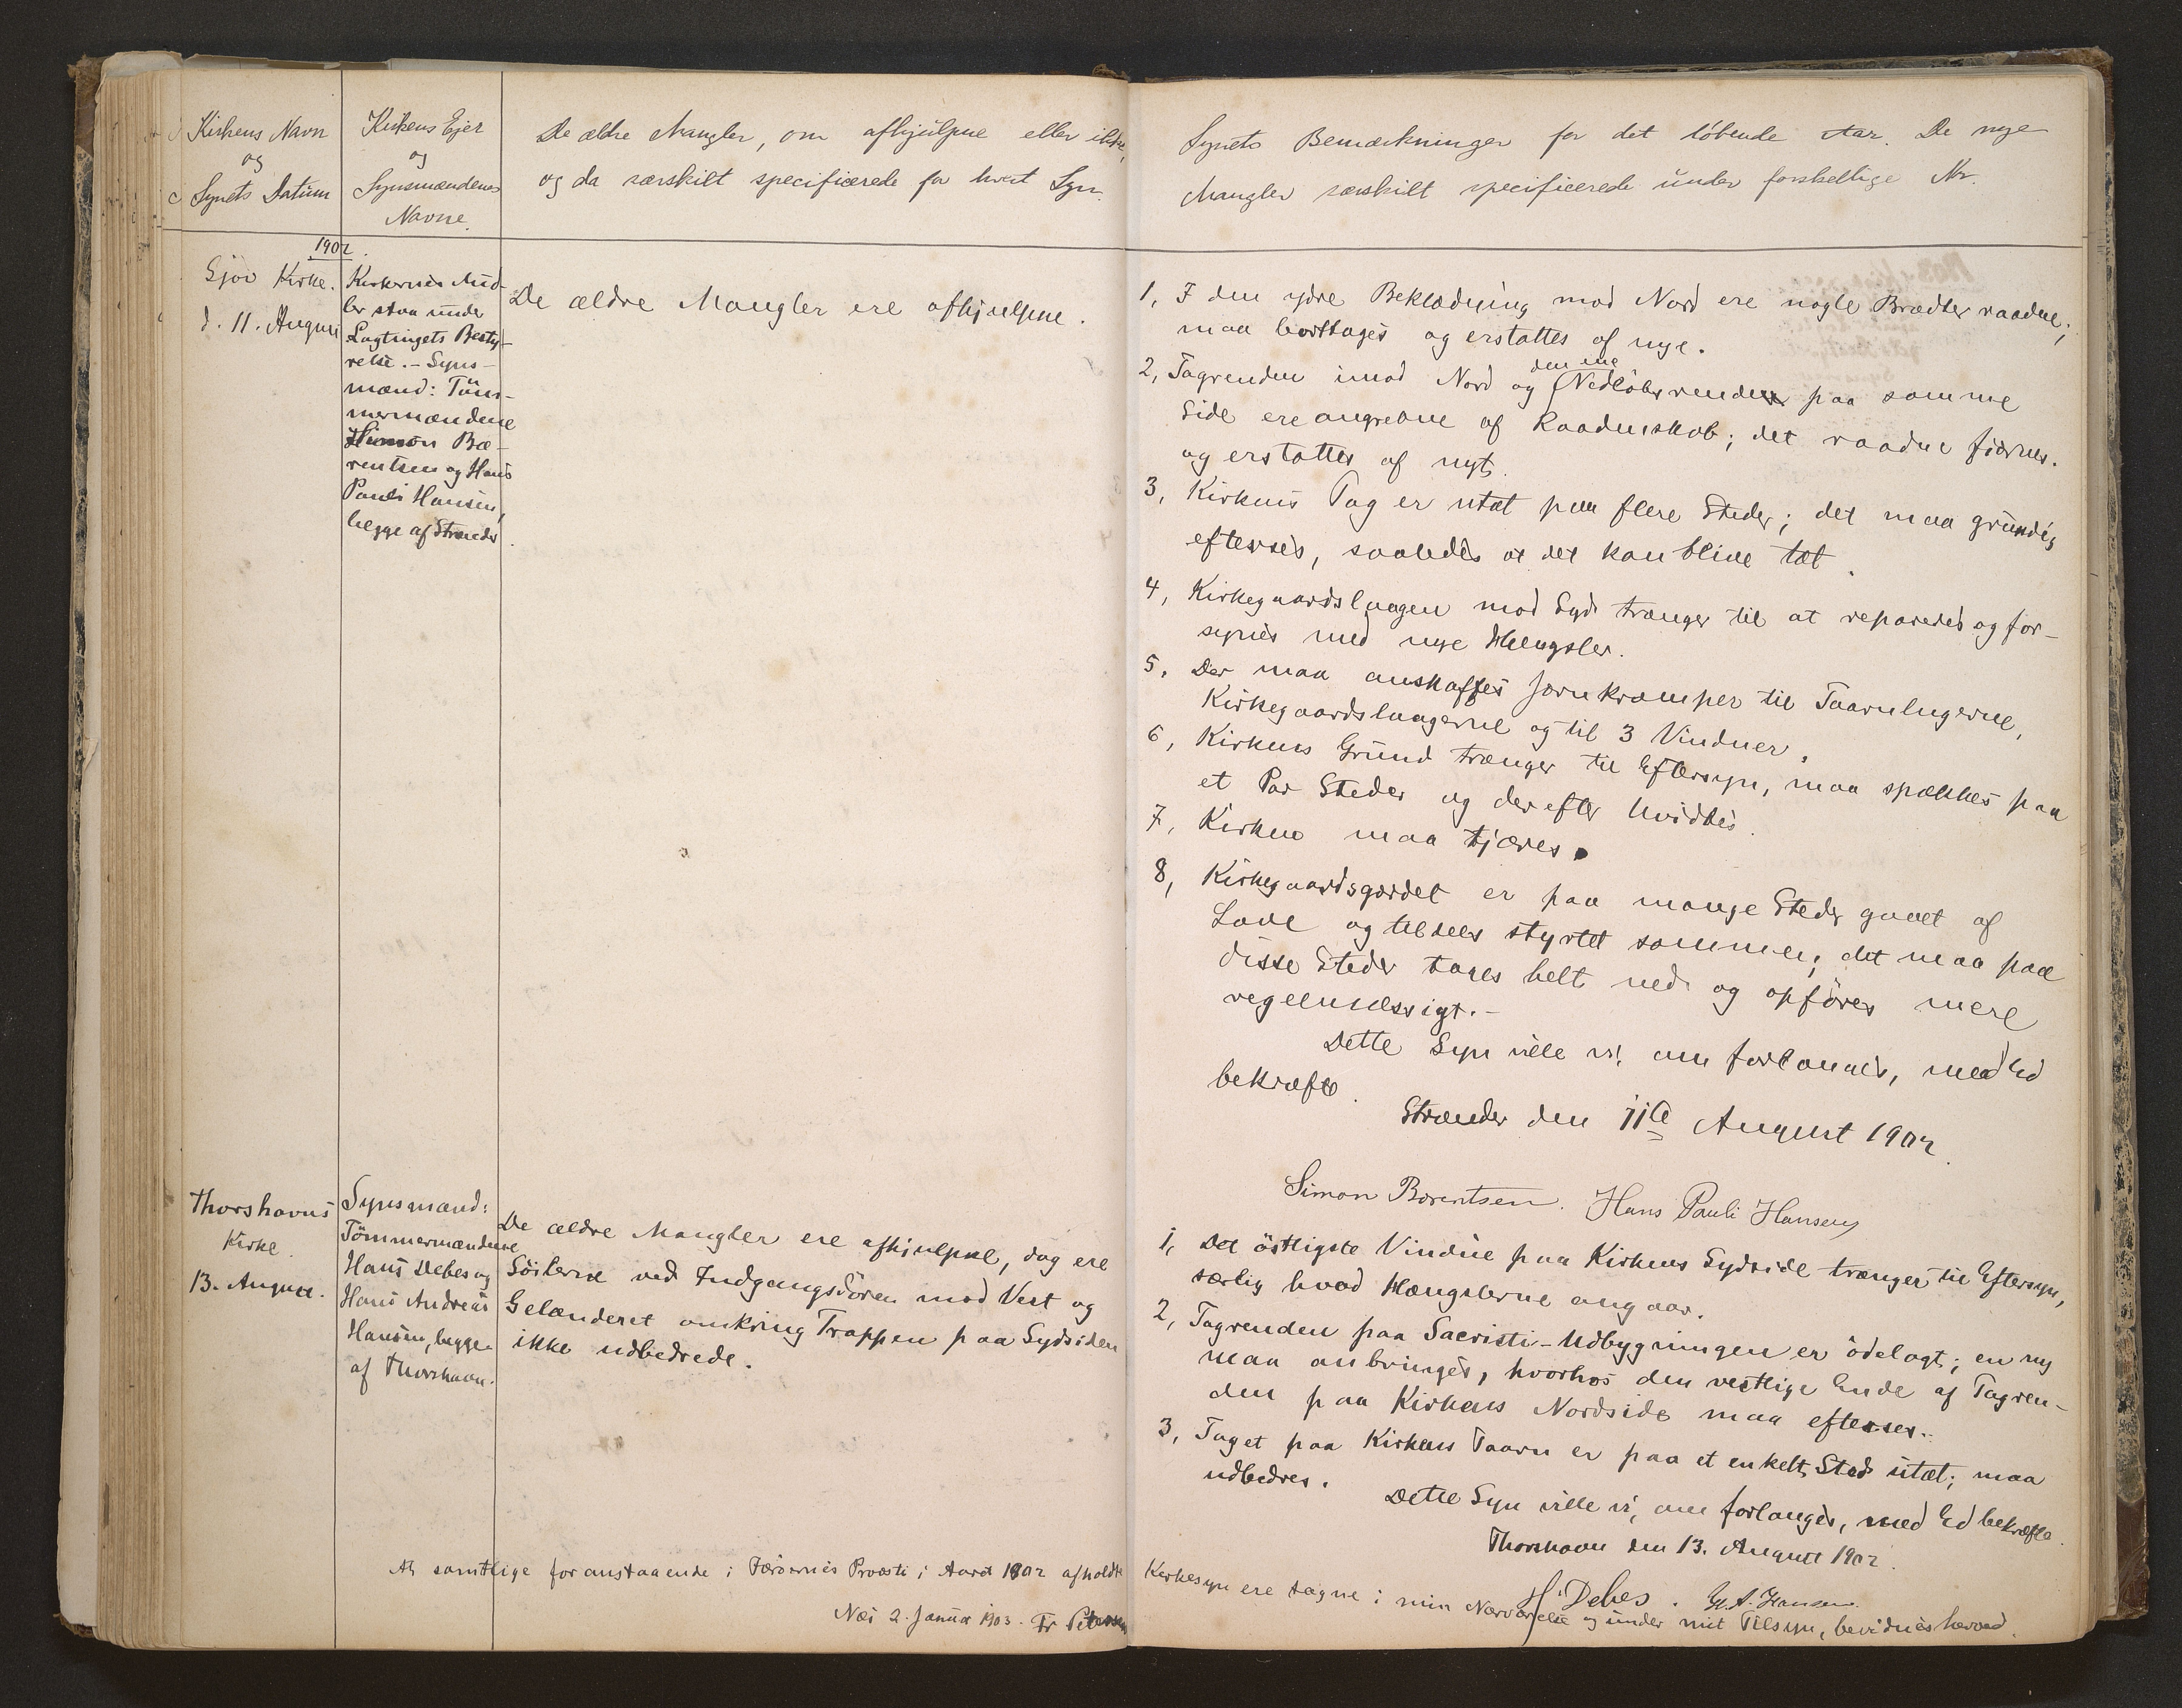 Kirkens Navn
og
Synets Datum
Kirkens Ejer
og
Synsmændenes
Navne.
De ældre Mangler, om afhjulpne eller ikke,
og da særskilt specificerede for hvert Syn.
1902.
Gjov Kirke.
d. 11. August
Kirkernes Mid-
ler staa under
Lagtingets Besty-
relse. - Syns-
mænd: Töm-
mermændene
Simon Bæ-
rentsen og Hans
Pauli Hansen,
begge af Strænder.
De ældre Mangler ere afhjulpne.
Thorshavns
Kirke.
13. August.
Synsmænd:
Tömmermændene
Hans Debes og
Hans Andreas
Hansen, begge
af Thorshavn.
De ældre Mangler ere afhjulpne, dog ere
Söilerne ved Indgangsdören mod Vest og
Gelænderet omkring Trappen paa Sydsiden
ikke udbedrede.
At samtlige foranstaaende i Færöernes Provsti i Aaret 1902 afholdte
Næs 2. Januar 1903. Fr Petersen
Synets Bemærkninger for det löbende Aar. De nye
Mangler særskilt specificerede under forskellige Nr.
1, I den ydre Beklædning mod Nord ere nogle Brædter raadne;
maa borttages og erstattes af nye.
den ene
2, Tagrenden imod Nord og Nedlöbsrenden paa samme
Side ere angrebne af Raadenskab; det raadne fjernes
og erstattes af nyt.
3, Kirkens Tag er utæt paa flere Steder; det maa grundig
efterses, saaledes at det kan blive tæt.
4, Kirkegaardslaagen mod Syd trænger til at repareres og for-
synes med nye Hængsler.
5, Der maa anskaffes Jernkramper til Taarnlugerne,
Kirkegaardslaagerne og til 3 Vinduer.
6, Kirkens Grund trænger til Eftersyn, maa spækkes paa
et Par Steder og derefter hvidtes.
7, Kirken maa tjæres.
8, Kirkegaardsgærdet er paa mange Steder gaaet af
Lave og tildels styrtet sammen; det maa paa
disse Steder tages helt ned og opföres mere
regelmæssigt. -
Dette Syn ville vi, om forlanges, med Ed
bekræfte.
Strænder den 11te August 1902.
Simon Bærentsen. Hans Pauli Hansen
1, Det östligste Vindue paa Kirkens Sydside trænger til Eftersyn,
særlig hvad Hængslerne angaar.
2, Tagrenden paa Sacristi-Udbygningen er ödelagt; en ny
maa anbringes, hvorhos den vestlige Ende af Tagren-
den paa Kirkens Nordside maa efterses.
3, Taget paa Kirkens Taarn er paa et enkelt Sted utæt; maa
udbedres.
Dette Syn ville vi, om forlanges, med Ed bekræfte.
Thorshavn den 13. August 1902.
H. Debes. H. A. Hansen.
Kirkesyn ere tagne i min Nærværelse og under mit Tilsyn, bevidnes herved.